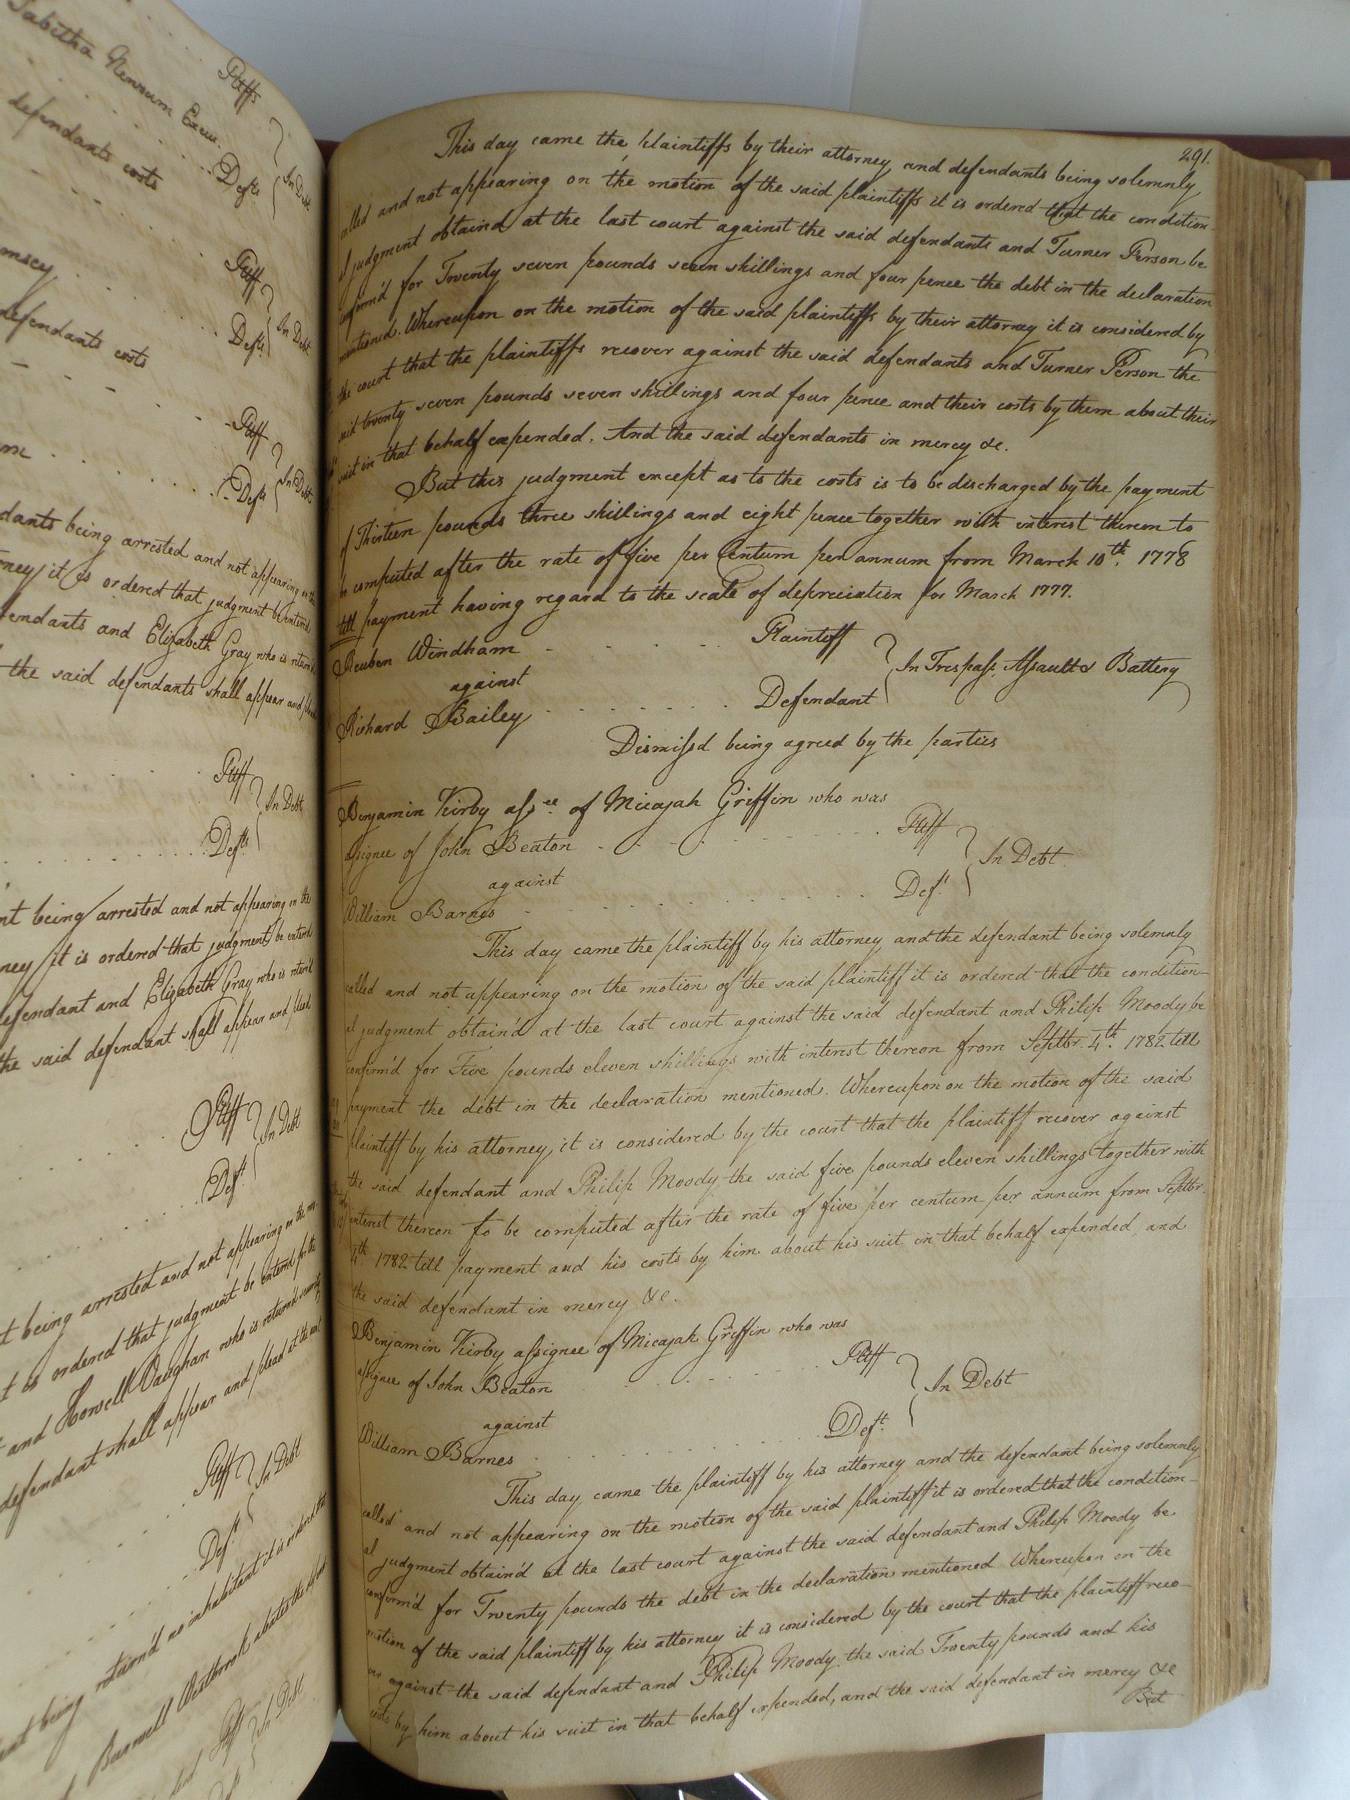 Tabitha Newsum Exec.
Pltffs
Defts
In Debt
defendants costs
Pltff
Defts
In Debt
defendants costs
Pltff
Defts
In Debt
being arrested and not appearing on the
it is ordered that judgment be enterd
and Elizabeth Gray who is return'd
the said defendants shall appear and
Pltff
In Debt
Deft
being arrested and not appearing on the
it is ordered that judgment be enterd
defendant and Elizabeth Gray who is return'd
the said defendant shall appear and plead
Pltff
In Debt
Deft
being arrested and not appearing on the
is ordered that judgment be enterd for the
and Howell Vaughan who is return'd security
defendant shall appear and plead at the next
Pltff
In Debt
Deft
being return'd no inhabitant it is ordered that
Burwell Westbrook abates the
Pltff
In Debt
291.
This day came the plaintiffs by their attorney and defendants being solemnly
called and not appearing on the motion of the said plaintiffs it is ordered that the condition
al judgment obtaind at the last court against the said defendants and Turner Person be
confirm'd for Twenty seven pounds seven shillings and four pence the debt in the declaration
mentioned. Whereupon on the motion of the said plaintiffs by their attorney it is considered by
the court that the plaintiffs recover against the said defendants and Turner Person the
said twenty seven pounds seven shillings and four pence and their costs by them about their
suit in that behalf expended. And the said defendants in mercy &c.
But this judgment except as to the costs is to be discharged by the payment
of Thirteen pounds three shillings and eight pence together with interest thereon to
be computed after the rate of five per Centum per annum from March 10th. 1778
till payment having regard to the scale of depreciation for March 1777.
Reuben Windham Plaintiff
against In Trespass Assault & Battery
Richard Bailey Defendant
Dismissd being agreed by the parties
Benjamin Kirby assee. of Micajah Griffin who was
assignee of John Beaton Pltff
against In Debt
William Barnes Deft
This day came the plaintiff by his attorney and the defendant being solemnly
called and not appearing on the motion of the said plaintiff it is ordered that the condition-
al judgment obtain'd at the last court against the said defendant and Philip Moody be
confirm'd for Five pounds eleven shillings with interest thereon from Septbr. 4th. 1782 till
payment the debt in the declaration mentioned. Whereupon on the motion of the said
plaintiff by his attorney it is considered by the court that the plaintiff recover against
the said defendant and Philip Moody the said five pounds eleven shillings together with
interest thereon to be computed after the rate of five per centum per annum from Septbr.
4th 1782 till payment and his costs by him about his suit in that behalf expended and
the said defendant in mercy &c.
Benjamin Kirby assignee of Micajah Griffin who was
assignee of John Beaton Pltff
against In Debt
William Barnes Deft.
This day came the plaintiff by his attorney and the defendant being solemnly
called and not appearing on the motion of the said plaintiff it is ordered that the condition-
al judgment obtain'd at the last court against the said defendant and Philip Moody be
confirm'd for Twenty pounds the debt in the declaration mentioned Whereupon on the
motion of the said plaintiff by his attorney it is considered by the court that the plaintiff reco-
ver against the said defendant and Philip Moody the said Twenty pounds and his
costs by him about his suit in that behalf expended, and the said defendant in mercy &c
But